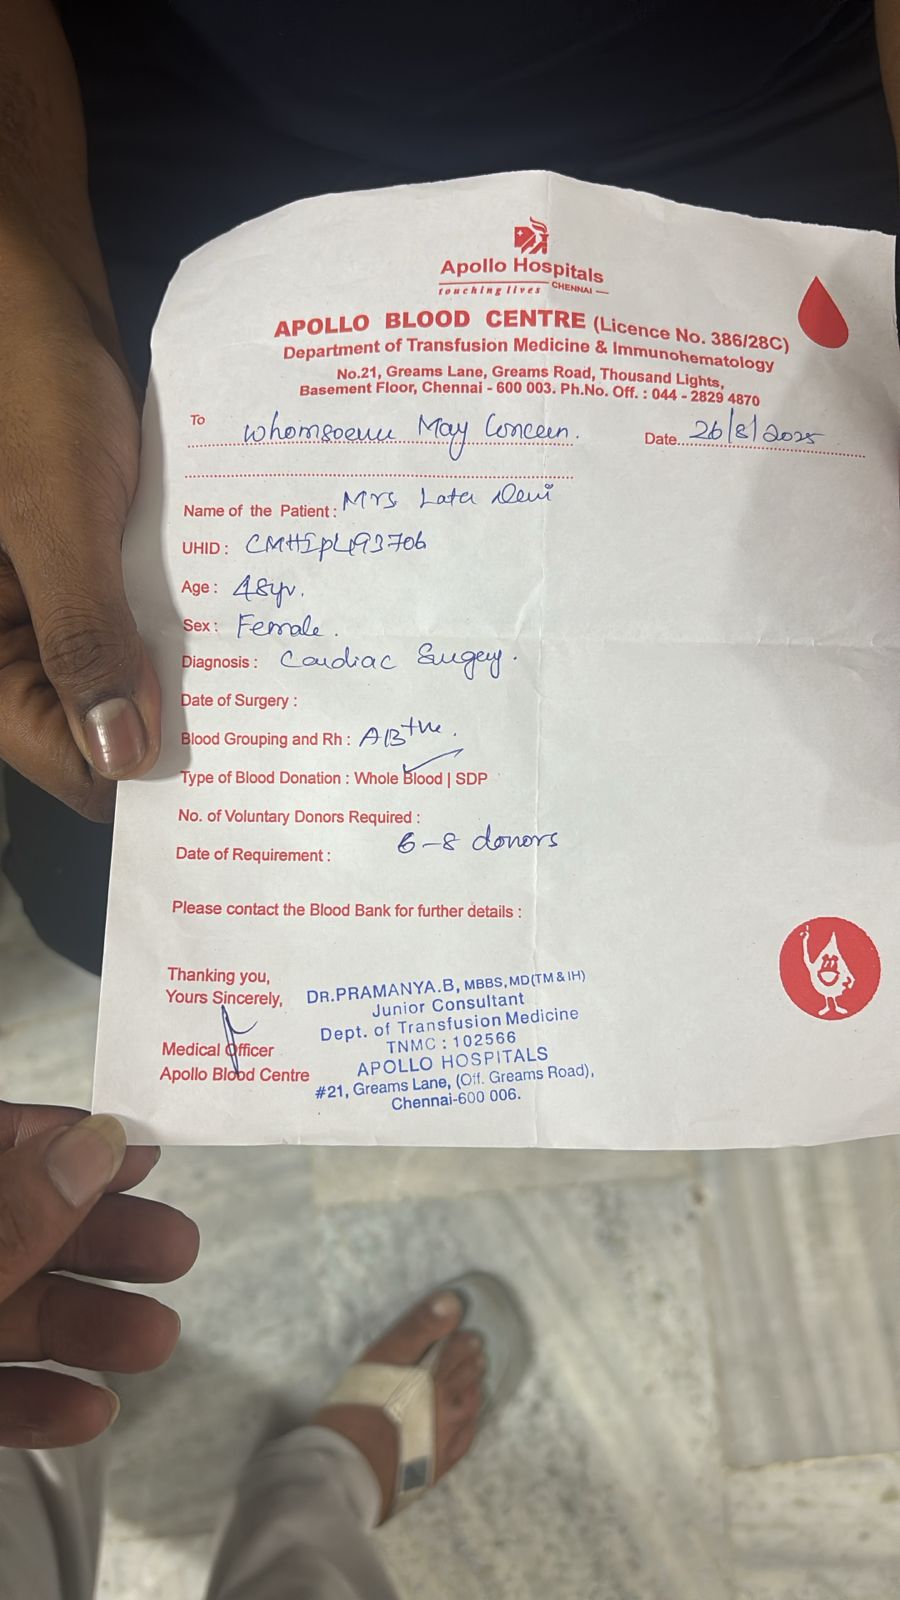 Apollo Hospitals
touching lives CHENNAI
APOLLO BLOOD CENTRE (Licence No. 386/28C)
Department of Transfusion Medicine & Immunohematology
No.21, Greams Lane, Greams Road, Thousand Lights,
Basement Floor, Chennai - 600 003. Ph.No. Off. : 044 - 2829 4870
To Whomsoever May Concern. Date 26/8/2025
Name of the Patient : Mrs Lata Devi
UHID : CMHIpL493706
Age : 48yr.
Sex : Female.
Diagnosis : Cardiac Surgery.
Date of Surgery :
Blood Grouping and Rh : AB+ve.
Type of Blood Donation : Whole Blood | SDP
No. of Voluntary Donors Required :
6-8 donors
Date of Requirement :
Please contact the Blood Bank for further details :
Thanking you,
Yours Sincerely,
Medical Officer
Apollo Blood Centre
DR.PRAMANYA.B, MBBS, MD(TM & IH)
Junior Consultant
Dept. of Transfusion Medicine
TNMC : 102566
APOLLO HOSPITALS
#21, Greams Lane, (Off. Greams Road),
Chennai-600 006.